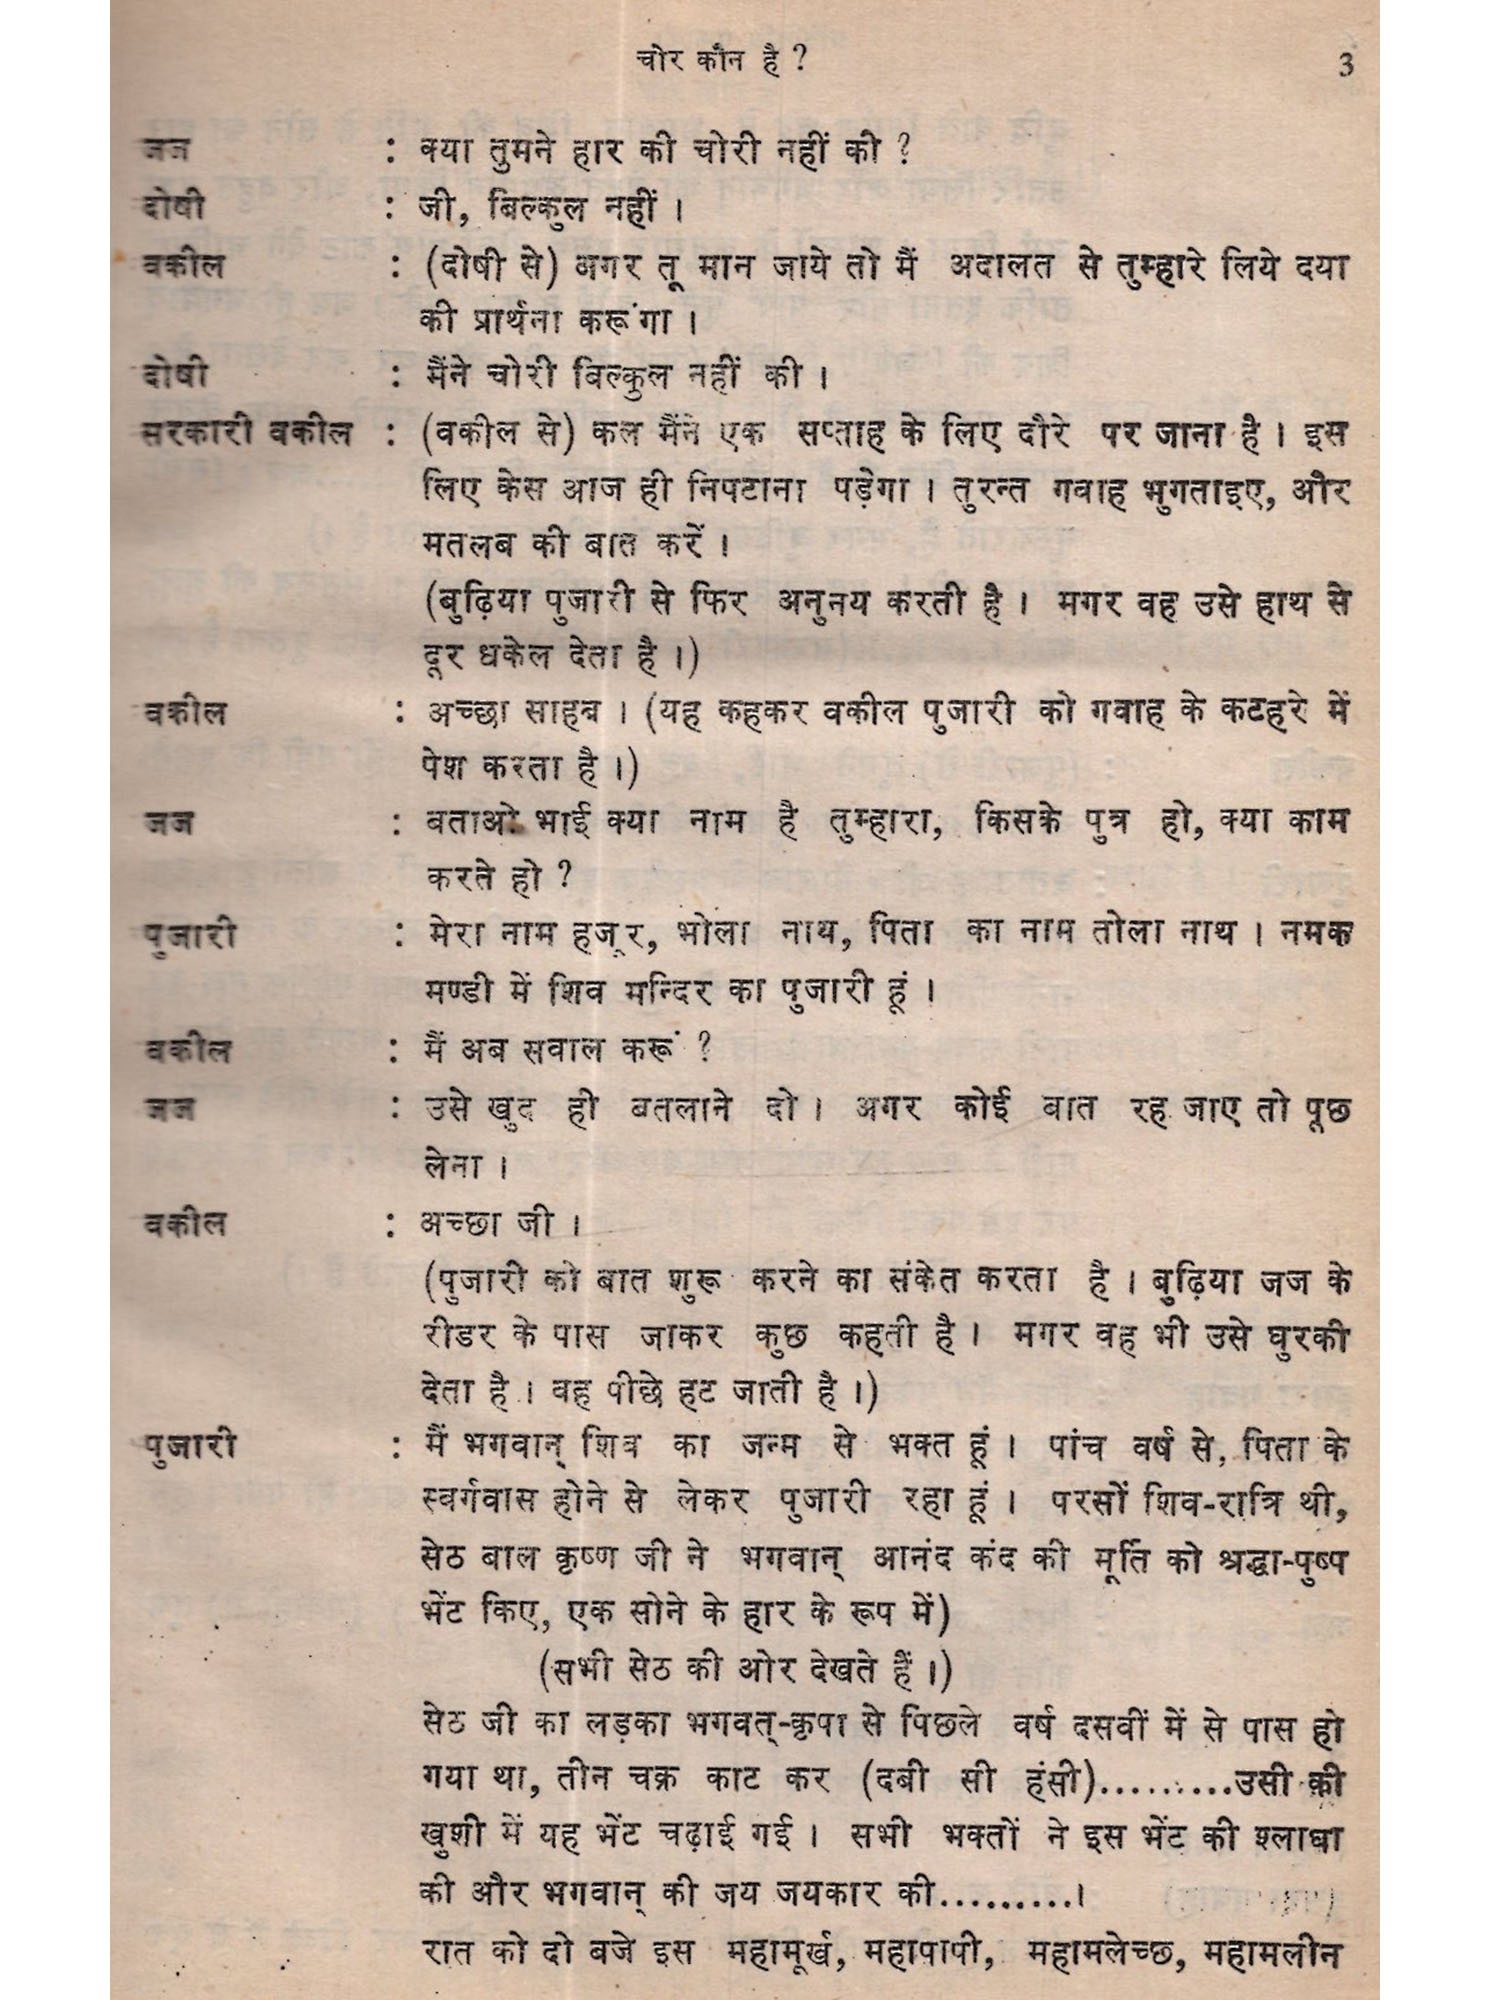 चोर कौन है ? 3
जज : क्या तुमने हार की चोरी नहीं की ?
दोषी : जी, बिल्कुल नहीं ।
वकील : (दोषी से) अगर तू मान जाये तो मैं अदालत से तुम्हारे लिये दया
की प्रार्थना करूंगा ।
दोषी : मैंने चोरी बिल्कुल नहीं की ।
सरकारी वकील : (वकील से) कल मैंने एक सप्ताह के लिए दौरे पर जाना है । इस
लिए केस आज ही निपटाना पड़ेगा । तुरन्त गवाह भुगताइए, और
मतलब की बात करें ।
(बुढ़िया पुजारी से फिर अनुनय करती है । मगर वह उसे हाथ से
दूर धकेल देता है ।)
वकील : अच्छा साहब । (यह कहकर वकील पुजारी को गवाह के कटहरे में
पेश करता है ।)
जज : बताओ भाई क्या नाम है तुम्हारा, किसके पुत्र हो, क्या काम
करते हो ?
पुजारी : मेरा नाम हजूर, भोला नाथ, पिता का नाम तोला नाथ । नमक
मण्डी में शिव मन्दिर का पुजारी हूं ।
वकील : मैं अब सवाल करूं ?
जज : उसे खुद ही बतलाने दो । अगर कोई बात रह जाए तो पूछ
लेना ।
वकील : अच्छा जी ।
(पुजारी को बात शुरू करने का संकेत करता है । बुढ़िया जज के
रीडर के पास जाकर कुछ कहती है । मगर वह भी उसे घुरकी
देता है । वह पीछे हट जाती है ।)
पुजारी : मैं भगवान् शिव का जन्म से भक्त हूं । पांच वर्ष से, पिता के
स्वर्गवास होने से लेकर पुजारी रहा हूं । परसों शिव-रात्रि थी,
सेठ बाल कृष्ण जी ने भगवान् आनंद कंद की मूर्ति को श्रद्धा-पुष्प
भेंट किए, एक सोने के हार के रूप में)
(सभी सेठ की ओर देखते हैं ।)
सेठ जी का लड़का भगवत्-कृपा से पिछले वर्ष दसवीं में से पास हो
गया था, तीन चक्र काट कर (दबी सी हंसी).........उसी की
खुशी में यह भेंट चढ़ाई गई । सभी भक्तों ने इस भेंट की श्लाघा
की और भगवान् की जय जयकार की.........।
रात को दो बजे इस महामूर्ख, महापापी, महामलेच्छ, महामलीन